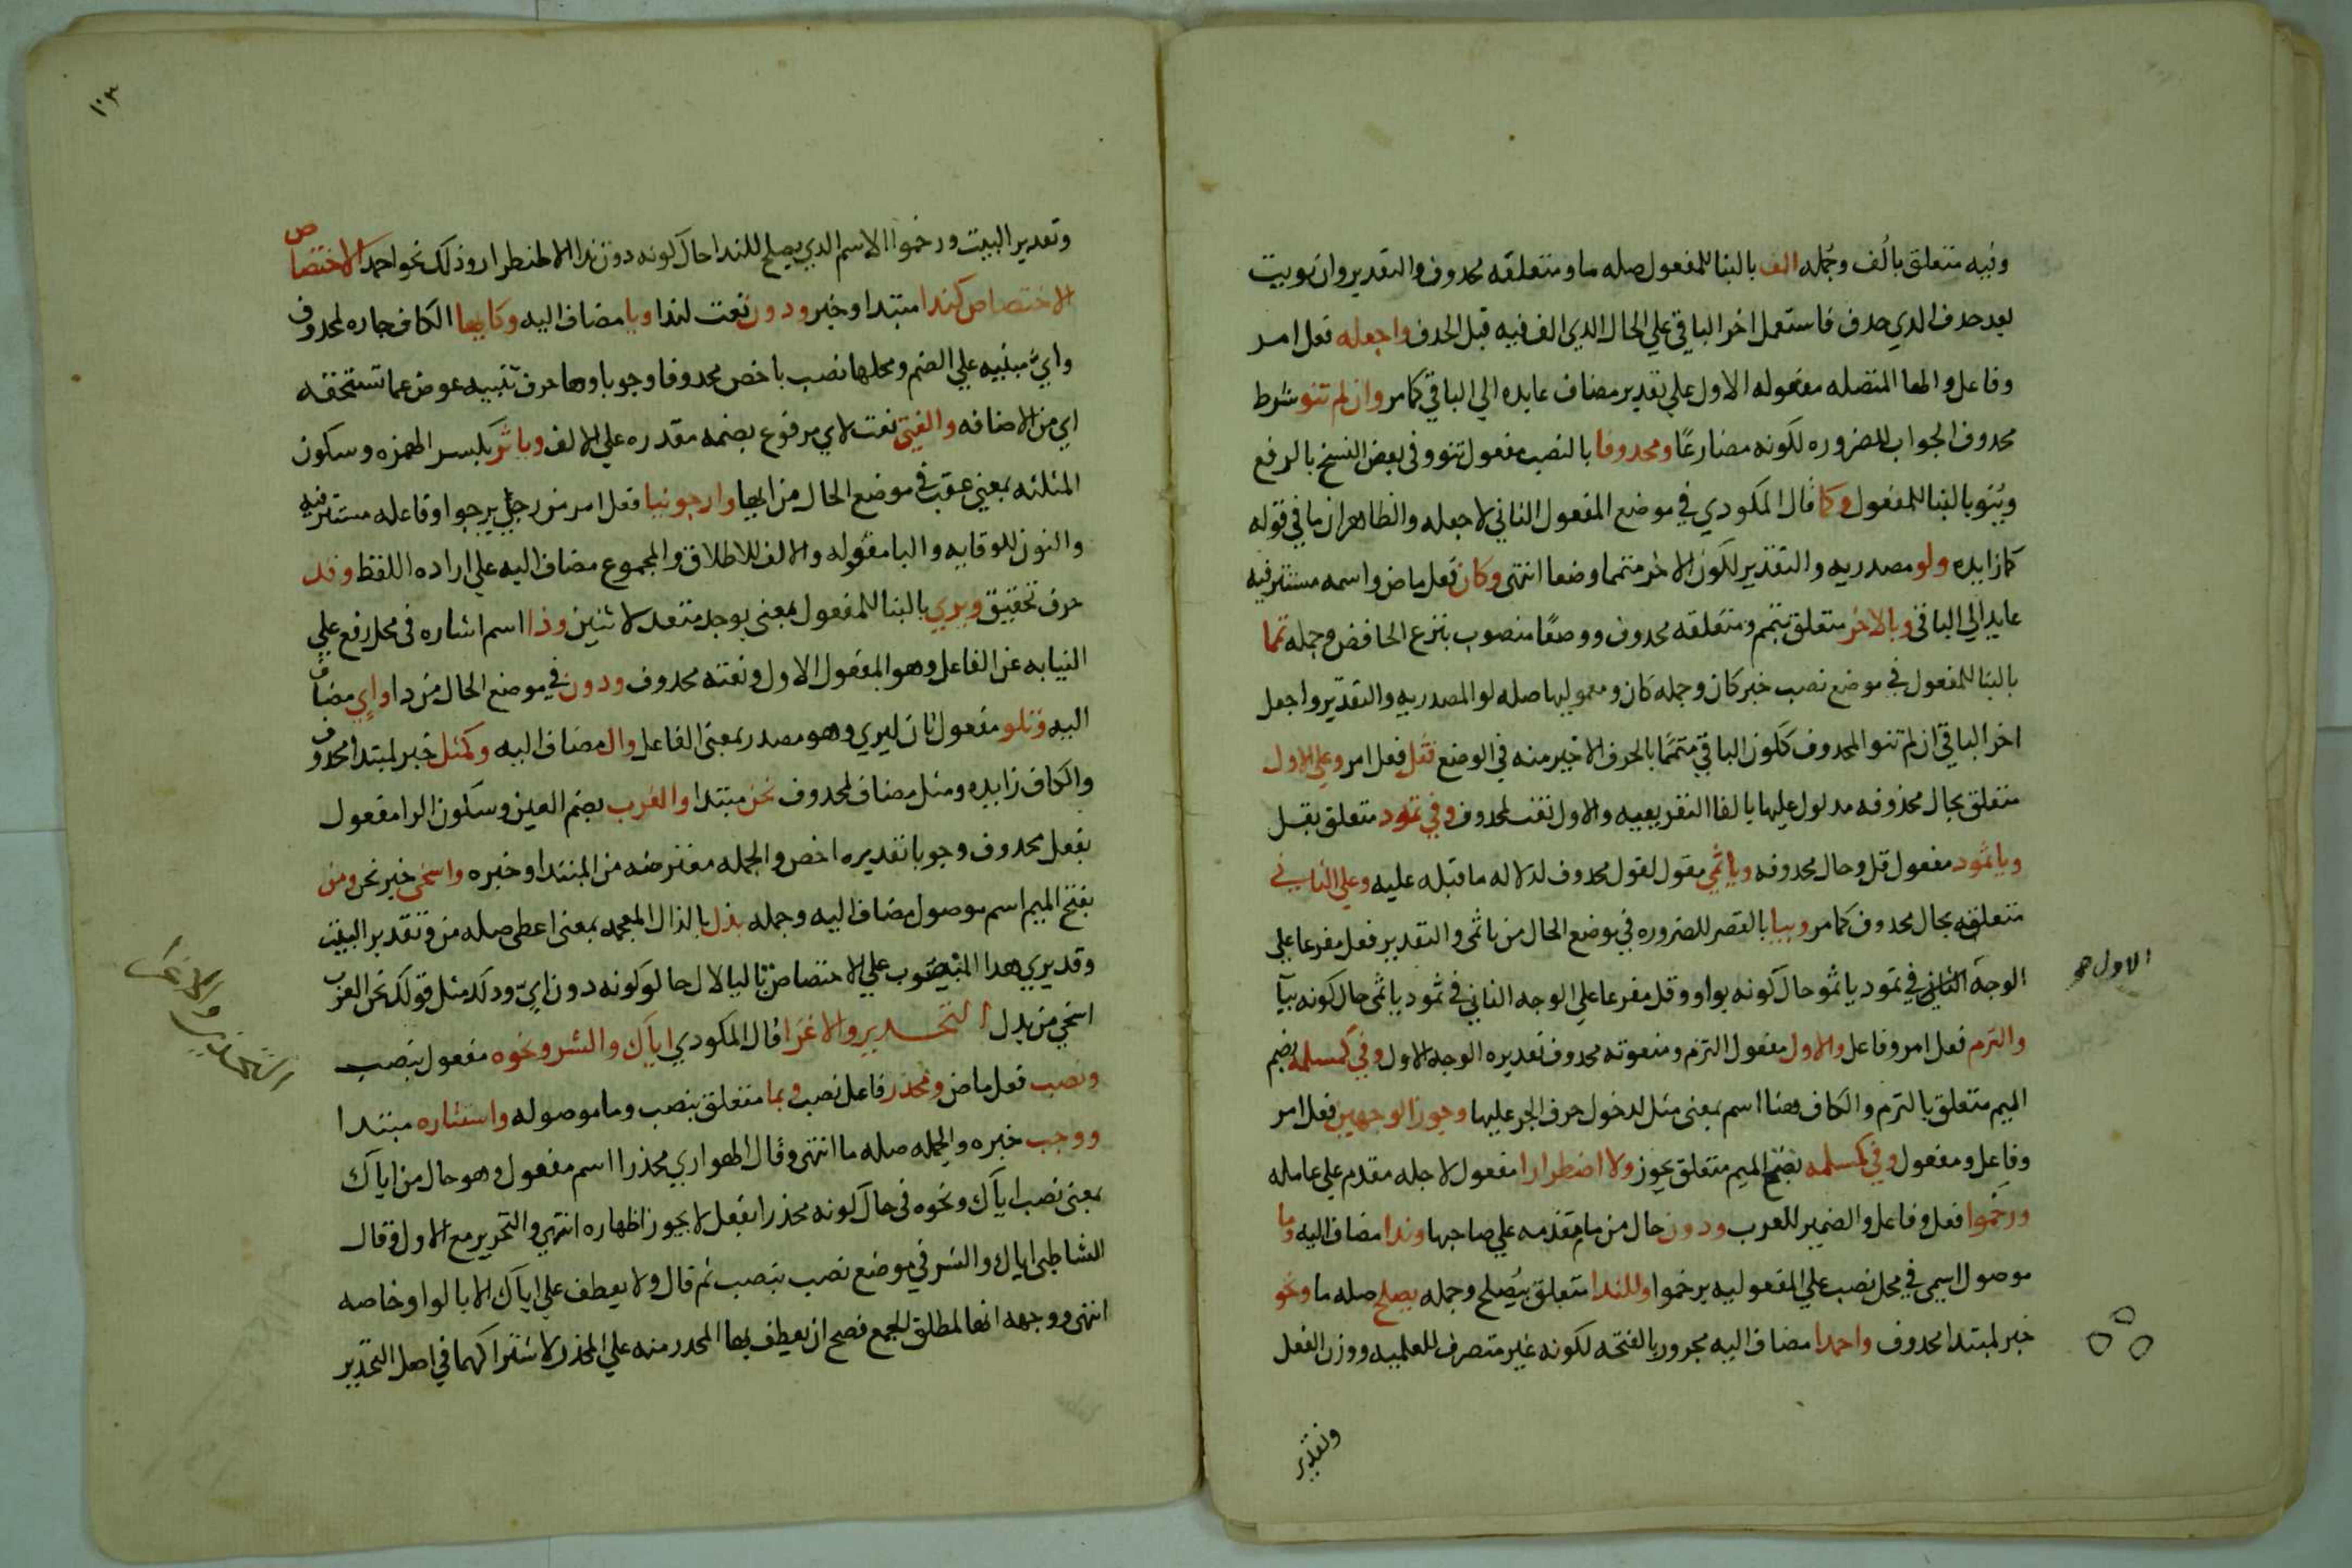 وفيه متعلق بألف وجمله الف بالبنا للمفعول صله ما ومتعلقه محدوف والتقدير وان نويت
بعد حدف الدي حدف فاستعمل اخر الباقي علي الحال الدي الف فيه قبل الحدف واجعله فعل امر
وفاعل والها المتصله مفعوله الاول علي تقدير مضاف عايده الي الباقي كما مر وان لم تنو شرط
محدوف الجواب للضروره لكونه مضارعًا ومحدوفا بالنصب مفعول تنو وفي بعض النسخ بالرفع
ويُنو بالبنا للمفعول وكما قال المكودي في موضع المفعول الثاني لاجعله والظاهر ان ما في قوله
كما زايده ولو مصدريه والتقدير لكون الاخر متمما وضعا انتهي وكان فعل ماض واسمه مستتر فيه
عايد الي الباقي وبالاخر متعلق بتمم ومتعلقه محدوف ووضعًا منصوب بنزع الخافض وجمله تمما
بالبنا للمفعول في موضع نصب خبر كان وجمله كان ومعموليها صله لو المصدريه والتقدير واجعل
اخر الباقي ان لم تنو المحدوف ككون الباقي متممًا بالحرف الاخير منه في الوضع فقل فعل امر وعلي الاول
متعلق بحال محذوفه مدلول عليها بالفا التفريعيه والاول نعت لمحدوف وفي ثمود متعلق بقل
ويا ثمو مفعول قل وحال محدوفه ويا ثمي مقول لقول محدوف لدلاله ما قبله عليه وعلي الثاني
متعلقه بحال محدوف كما مر وبيا بالقصر للضروره في موضع الحال من يا ثمي والتقدير فعل مفرعا علي
الوجه الثاني في ثمود يا ثمو حال كونه بواو وقل مفرعا علي الوجه الثاني في ثمود يا ثمي حال كونه بيآ
الاول صح
والتزم فعل امر وفاعل والاول مفعول التزم ومنعوته محدوف تقديره الوجه الاول وفي كمسلمه بضم
الميم متعلق بالتزم والكاف هنا اسم بمعنى مثل لدخول حرف الجر عليها وجوز الوجهين فعل امر
وفاعل ومفعول وفي كمسلمه بفتح الميم متعلق بجوز ولاضطرارا مفعول لاجله مقدم علي عامله
ورخموا فعل وفاعل والضمير للعرب ودون حال من ما متقدمه علي صاحبها وندا مضاف اليه وما
موصول اسمي في محل نصب علي المفعوليه برخموا وللندا متعلق بيصلح وجمله يصلح صله ما ونحو
خبر لمبتدا محدوف واحمدا مضاف اليه مجرور بالفتحه لكونه غير متصرف للعلميه ووزن الفعل
وتقدير
١٠٣
وتقدير البيت ورخموا الاسم الدي يصلح للندا حال كونه دون ندا لاضطرار وذلك نحو احمد الاختصاص
الاختصاص كندا مبتدا وخبر ودون نعت لندا ويا مضاف اليه وكايها الكاف جاره لمحدوف
واي مبنيه علي الضم ومحلها نصب باخص محدوفا وجوبا وها حرف تنبيه عوض عما تستحقه
اي من الاضافه والفتي نعت لاي مرفوع بضمه مقدره علي الالف وباثر بكسر الهمزه وسكون
المثلثه بمعني عقب في موضع الحال من ايها وارجونيا فعل امر من رجل يرجوا وفاعله مستتر فيه
والنون للوقايه واليا مفعوله والالف للاطلاق والمجموع مضاف اليه علي اراده اللفظ وقد
حرف تحقيق ويري بالبنا للمفعول بمعني يوجد متعد لاثنين وذا اسم اشاره في محل رفع علي
النيابه عن الفاعل وهو المفعول الاول ونعته محدوف ودون في موضع الحال من دا واي مضاف
اليه وتلو مفعول ثان ليري وهو مصدر بمعنى الفاعل وال مضاف اليه وكمثل خبر لمبتدا محدوف
والكاف زايده ومثل مضاف لمحدوف نحن مبتدا والعرب بضم العين وسكون الرا مفعول
بفعل محدوف وجوبا تقديره اخص والجمله معترضه من المبتدا وخبره واسخى خبر نحن ومن
بفتح الميم اسم موصول مضاف اليه وجمله بذل بالذال المعجمه بمعنى اعطي صله من وتقدير البيت
وقد يري هدا المنصوب علي الاختصاص تاليا لال حالو كونه دون ايّ ودلك مثل قولك نحن العرب
اسخي من بدل التحدير والاغرا قال المكودي اياك والشر ونحوه مفعول بنصب
التحدير والاغرا
ونصب فعل ماض ومحذر فاعل نصب وبما متعلق بنصب وما موصوله واستتاره مبتدا
ووجب خبره والجمله صله ما انتهي وقال الهواري محذرا اسم مفعول وهو حال من اياك
بمعنى نصب اياك ونحوه في حال كونه محذرا بفعل لا يجوز اظهاره انتهي والتحرير مع الاول وقال
الشاطبي اياك والشر في موضع نصب بنصب ثم قال ولا يعطف علي اياك الا بالواو خاصه
انتهي ووجهه انها لمطلق الجمع فصح ان يعطف بها المحدر منه علي المحذر لاشتراكهما في اصل التحدير